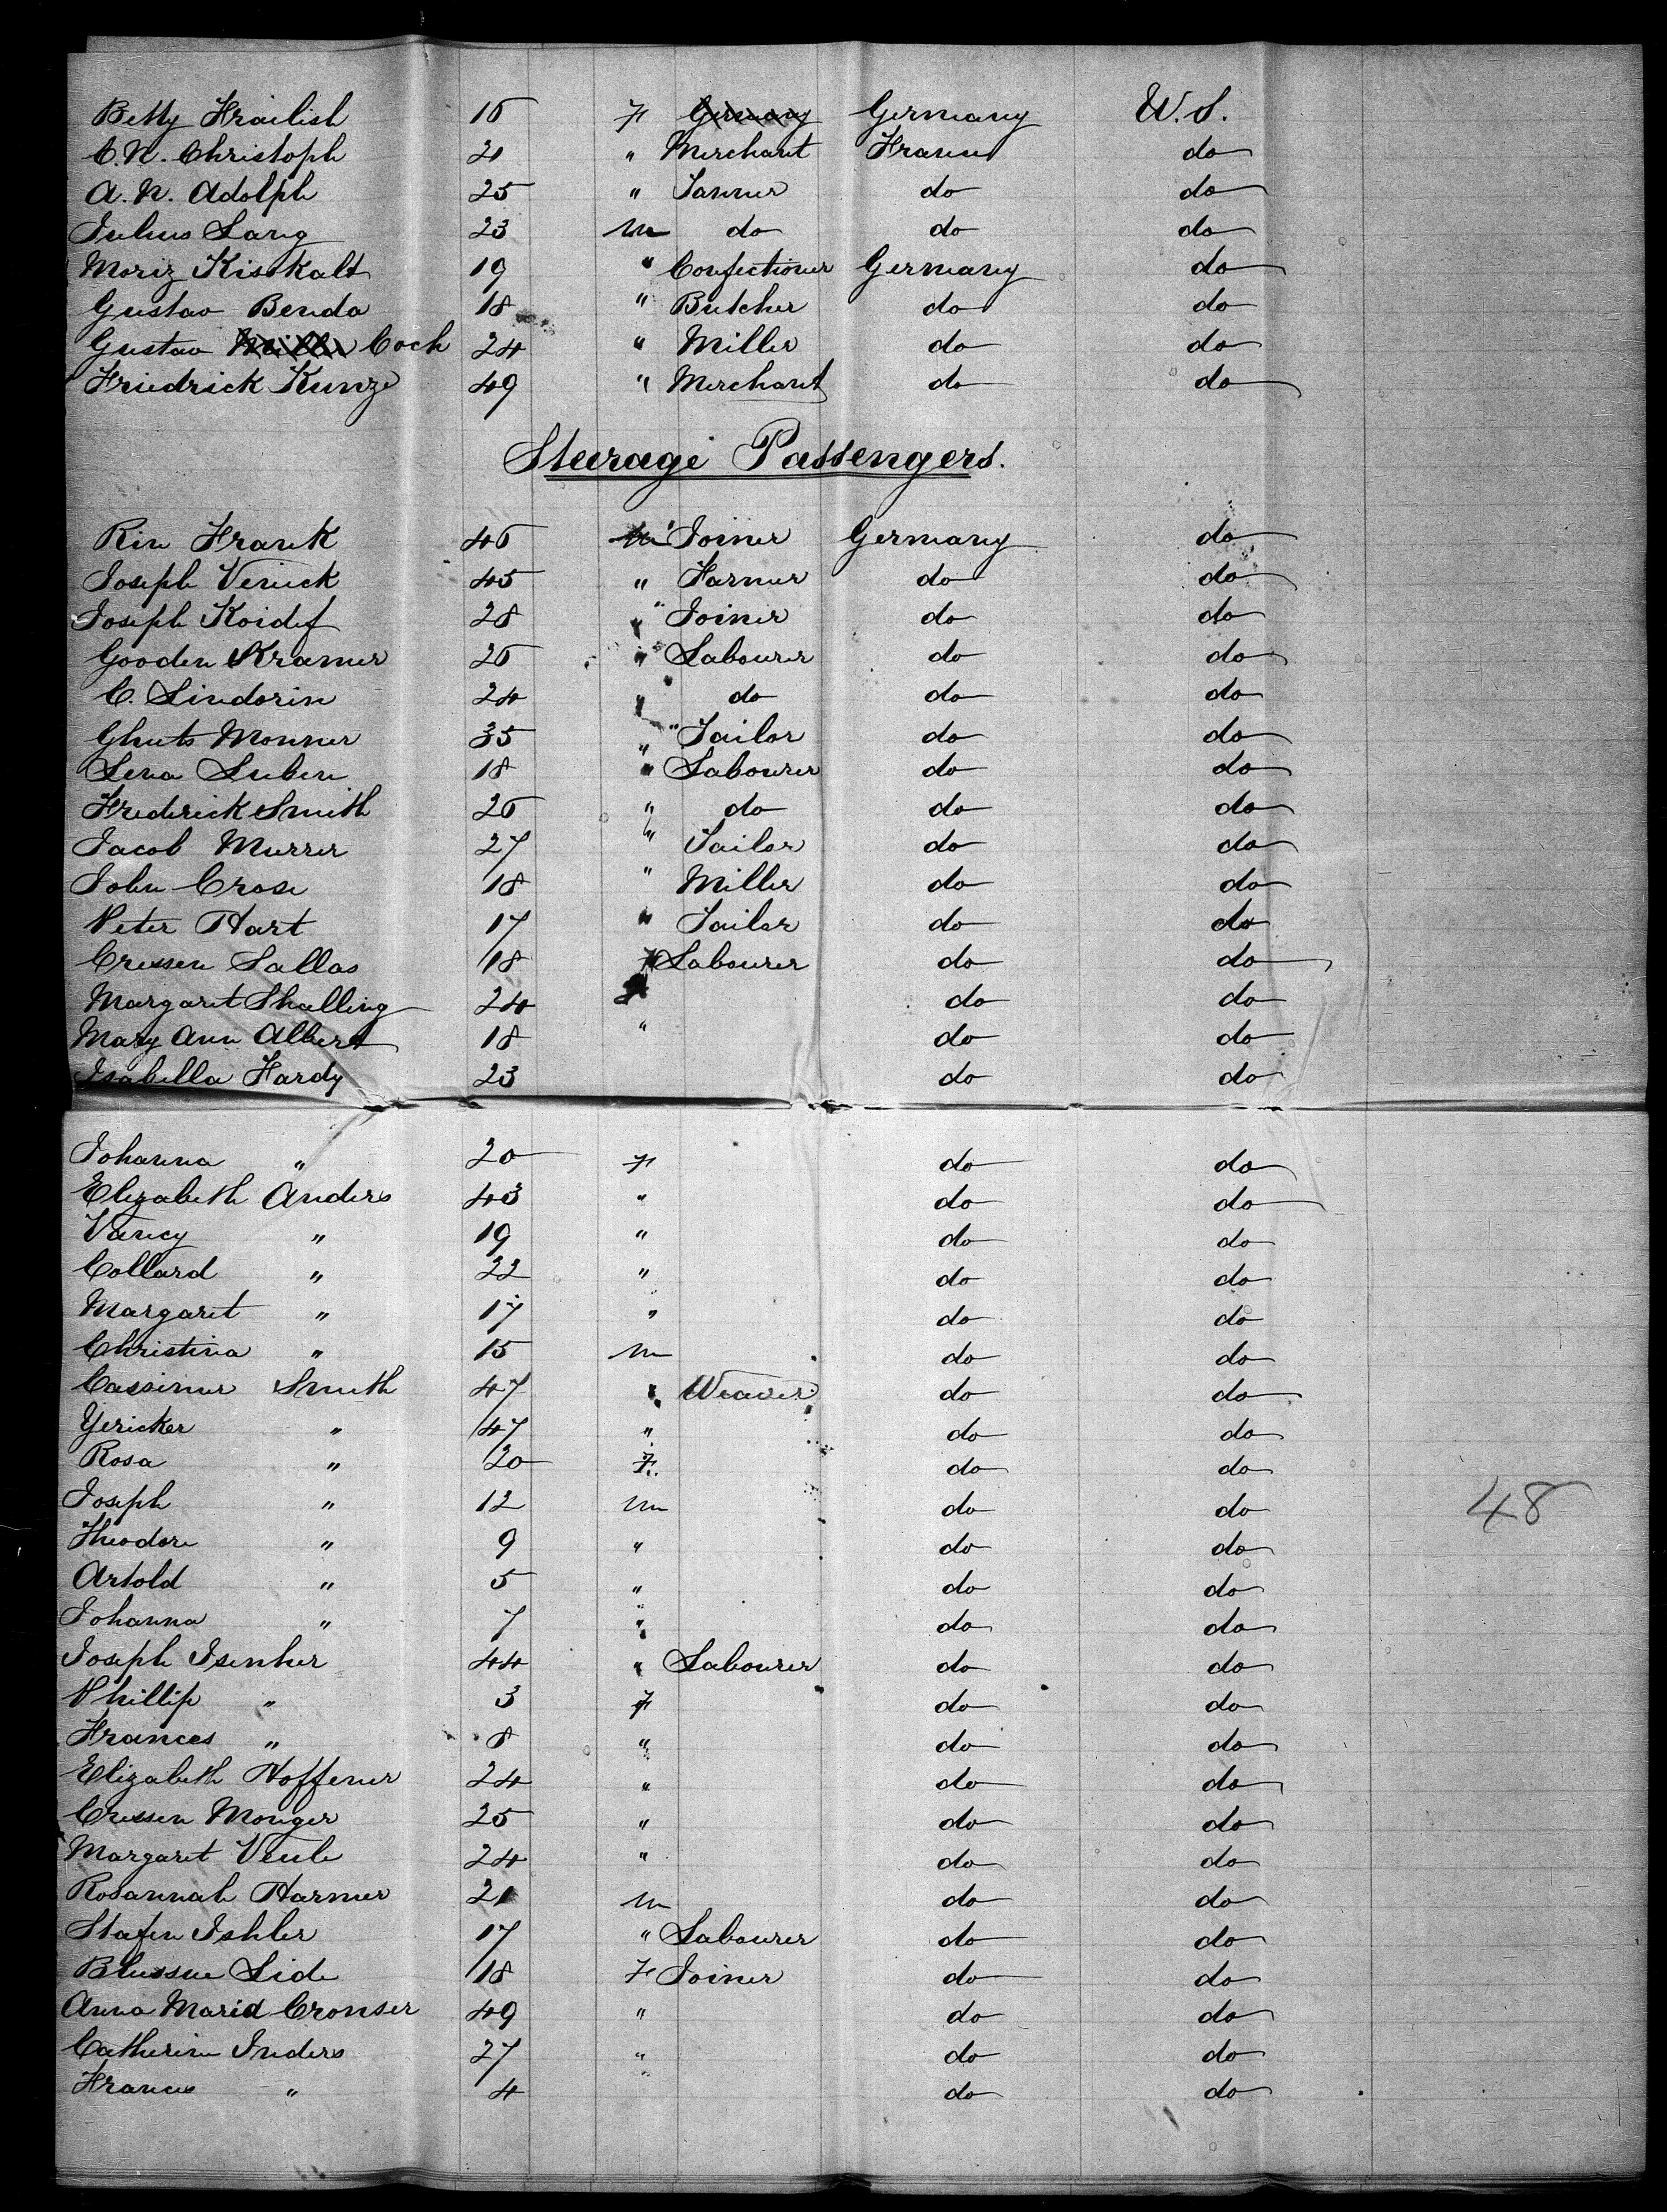 Betty Frailish 16 F ~~Germany~~ Germany U.S.
C.N. Christoph 21 " Merchant France do
A.N. Adolph 25 " Tanner do do
Julius Lang 23 M do do do
Moriz Kisskalt 19 " Confectioner Germany do
Gustav Benda 18 " Butcher do do
Gustav ~~Miller~~ Coch 24 " Miller do do
Friedrick Kunze 49 " Merchant do do
Steerage Passengers.
Rin Frank 46 M Joiner Germany do
Joseph Venick 45 " Farmer do do
Joseph Koidef 28 " Joiner do do
Gooden Kramer 26 " Labourer do do
C. Lindorin 24 " do do do
Ghuts Monner 35 " Tailor do do
Lena Luben 18 " Labourer do do
Frederick Smith 26 " do do do
Jacob Murrer 27 " Tailor do do
John Crose 18 " Miller do do
Peter Hart 17 " Tailor do do
Cressen Sallas 18 F Labourer do do
Margaret Shalling 24 do do
Mary Ann Albert 18 " do do
Isabella Hardy 23 do do
Johanna " 20 F do do
Elizabeth Anders 43 " do do
Vancy " 19 " do do
Collard " 22 " do do
Margaret " 17 " do do
Christina " 15 M do do
Cassimer Smith 47 " Weaver do do
Yericker " 47 " do do
Rosa " 20 F. do do
Joseph " 12 M do do 48
Theodore " 9 " do do
Artold " 5 " do do
Johanna " 7 " do do
Joseph Isenher 44 " Labourer do do
Phillip " 3 F do do
Frances " 8 " do do
Elizabeth Hoffener 24 " do do
Cressen Monger 25 " do do
Margaret Veule 24 " do do
Rosannah Harmer 21 M do do
Stafen Ishler 17 " Labourer do do
Blussue Lide 18 F Joiner do do
Anna Maria Cronser 49 " do do
Catherine Inders 27 " do do
Frances " 4 do do